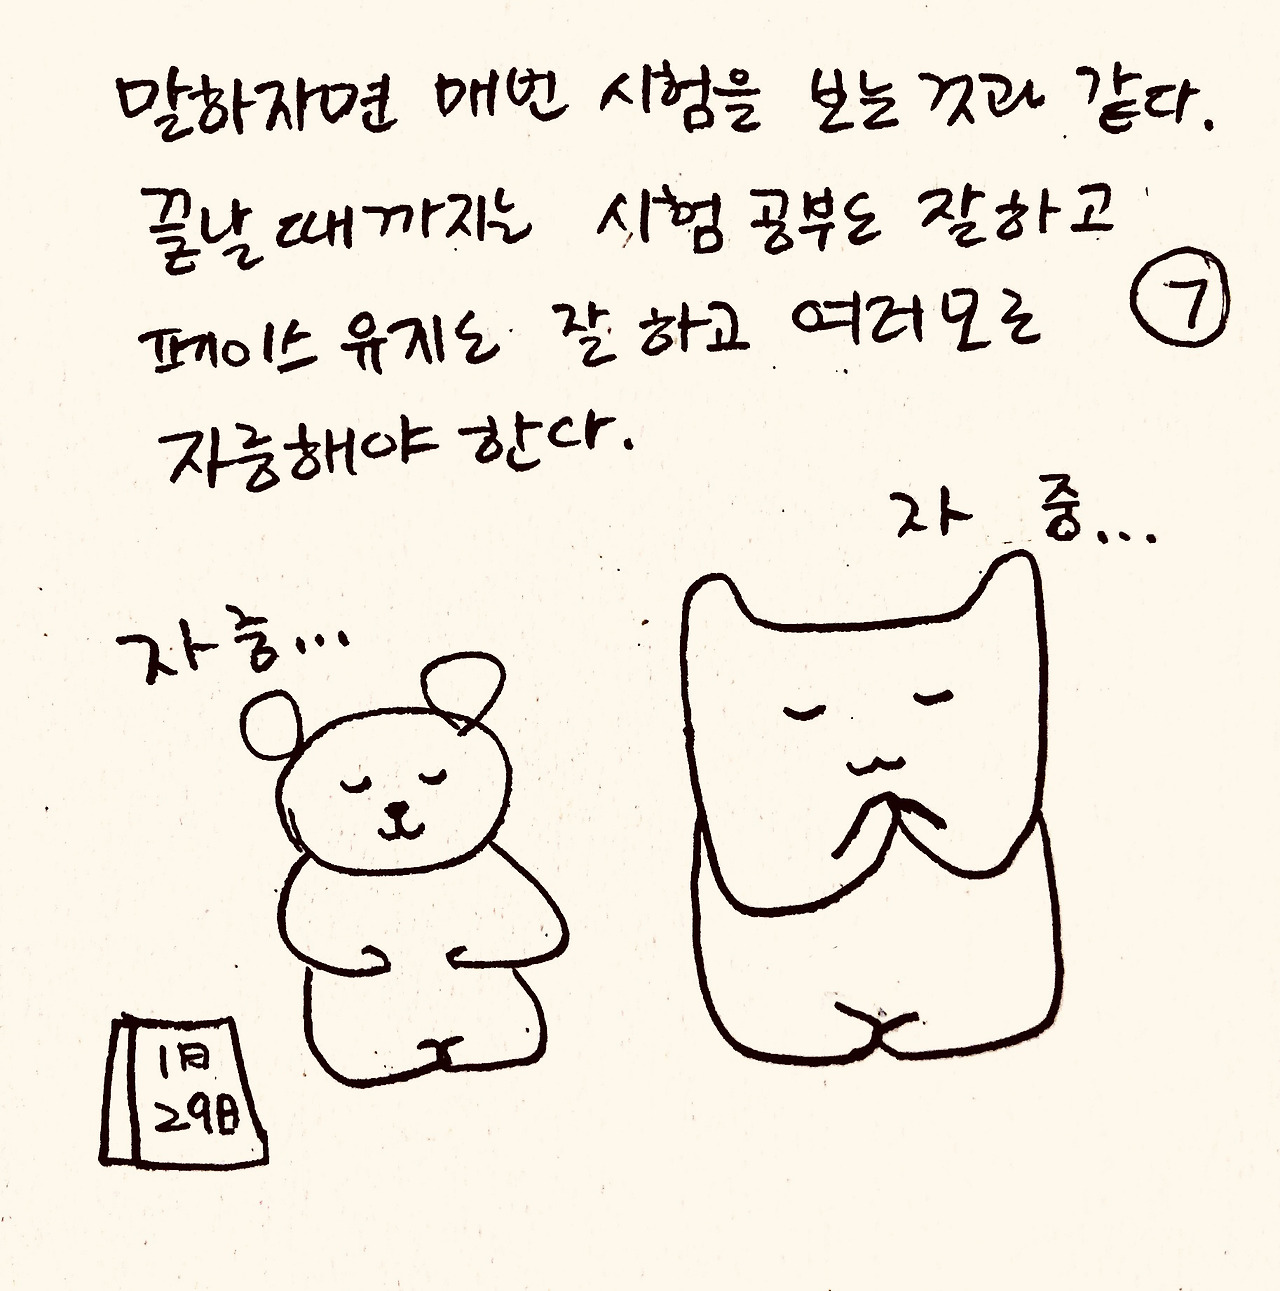 말하자면 매번 시험을 보는 것과 같다.
끝날 때까지는 시험 공부도 잘하고
페이스 유지도 잘 하고 여러모로
⑦
자중해야 한다.
자 중...
자중...
1月
29日